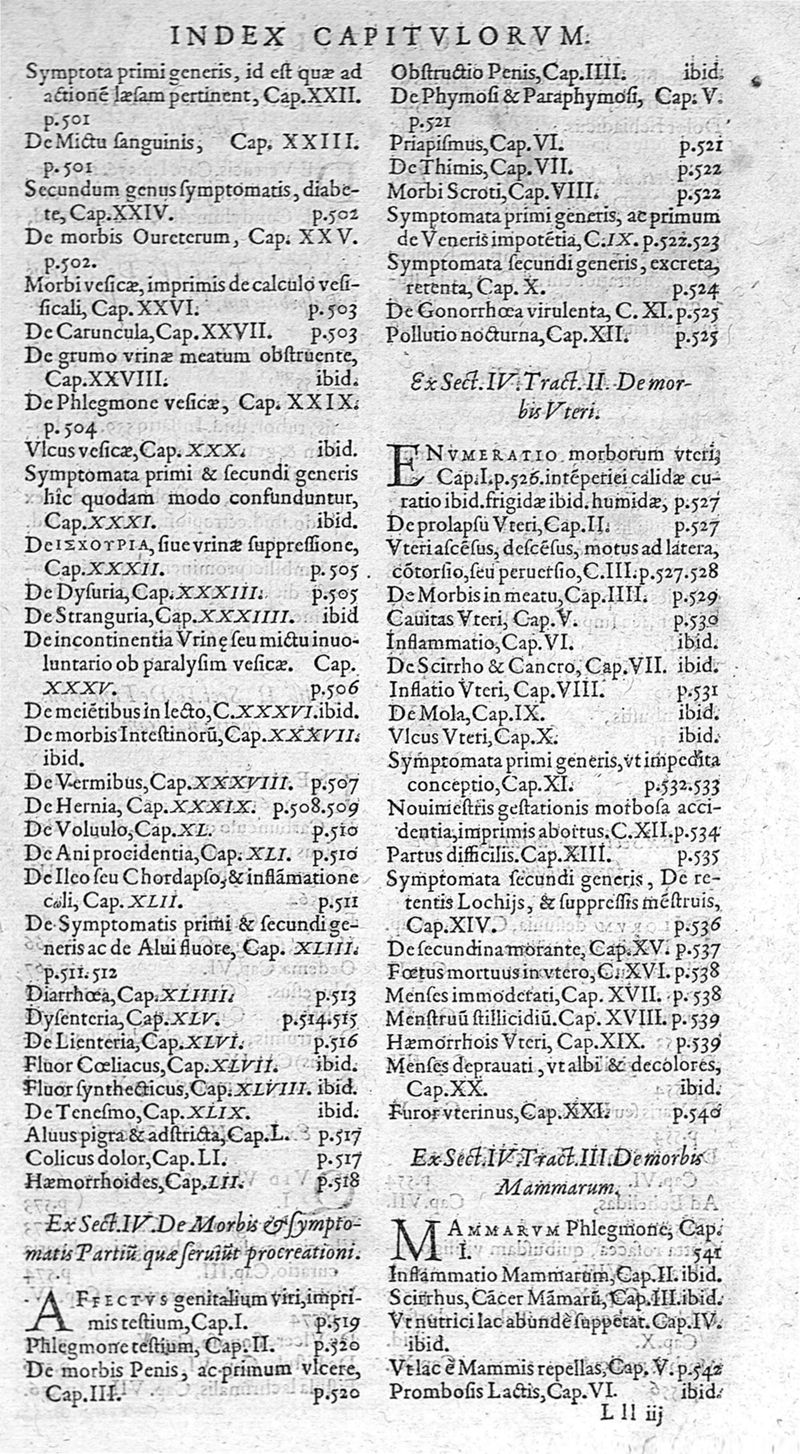 INDEX CAPITVLORVM.
Symptota primi generis, id est quæ ad
actionē læsam pertinent, Cap.XXII.
p.501
De Mictu sanguinis, Cap. XXIII.
p.501
Secundum genus symptomatis, diabe-
te, Cap.XXIV. p.502
De morbis Oureterum, Cap. XXV.
p.502.
Morbi vesicæ, imprimis de calculo vesi-
ficali, Cap.XXVI. p.503
De Caruncula, Cap.XXVII. p.503
De grumo vrinæ meatum obstruente,
Cap.XXVIII. ibid.
De Phlegmone vesicæ, Cap. XXIX.
p.504
Vlcus vesicæ, Cap. XXX. ibid.
Symptomata primi & secundi generis
hîc quodam modo confunduntur,
Cap.XXXI. ibid.
De ΙΣΧΟΥΡΙΑ, siue vrinæ suppressione,
Cap.XXXII. p.505
De Dysuria, Cap.XXXIII. p.505
De Stranguria, Cap.XXXIIII. ibid
De incontinentia Vrinę seu mictu inuo-
luntario ob paralysim vesicæ. Cap.
XXXV. p.506
De meiētibus in lecto, C.XXXVI.ibid.
De morbis Intestinorū, Cap.XXXVII.
ibid.
De Vermibus, Cap.XXXVIII. p.507
De Hernia, Cap.XXXIX. p.508.509
De Voluulo, Cap.XL. p.510
De Ani procidentia, Cap. XLI. p.510
De Ileo seu Chordapso, & inflāmatione
cωli, Cap. XLII. p.511
De Symptomatis primi & secundi ge-
neris ac de Alui fluore, Cap. XLIII.
p.511.512
Diarrhœa, Cap.XLIIII. p.513
Dysenteria, Cap.XLV. p.514.515
De Lienteria, Cap.XLVI. p.516
Fluor Cœliacus, Cap.XLVII. ibid.
Fluor synthecticus, Cap.XLVIII. ibid.
De Tenesmo, Cap.XLIX. ibid.
Aluus pigra & adstricta, Cap.L. p.517
Colicus dolor, Cap.LI. p.517
Hæmorrhoides, Cap.LII. p.518
Ex Sect.IV. De Morbis & sympto-
matis Partiū quæ seruiūt procreationi.
AFFECTVS genitalium viri, impri-
mis testium, Cap.I. p.519
Phlegmone testium, Cap.II. p.520
De morbis Penis, ac primum vlcere,
Cap.III. p.520
Obstructio Penis, Cap.IIII. ibid.
De Phymosi & Paraphymosi, Cap. V.
p.521
Priapismus, Cap.VI. p.521
De Thimis, Cap.VII. p.522
Morbi Scroti, Cap.VIII. p.522
Symptomata primi generis, ac primum
de Veneris impotētia, C.IX. p.522.523
Symptomata secundi generis, excreta,
retenta, Cap. X. p.524
De Gonorrhœa virulenta, C. XI. p.525
Pollutio nocturna, Cap.XII. p.525
Ex Sect.IV. Tract.II. De mor-
bis Vteri.
ENVMERATIO morborum vteri,
Cap.I.p.526.intēperiei calidæ cu-
ratio ibid.frigidæ ibid.humidæ, p.527
De prolapsu Vteri, Cap.II. p.527
Vteri ascēsus, descēsus, motus ad latera,
cōtorsio, seu peruersio, C.III.p.527.528
De Morbis in meatu, Cap.IIII. p.529
Cauitas Vteri, Cap.V. p.530
Inflammatio, Cap.VI. ibid.
De Scirrho & Cancro, Cap.VII. ibid.
Inflatio Vteri, Cap.VIII. p.531
De Mola, Cap.IX. ibid.
Vlcus Vteri, Cap.X. ibid.
Symptomata primi generis, vt impedita
conceptio, Cap.XI. p.532.533
Nouimestris gestationis morbosa acci-
dentia, imprimis abortus. C.XII.p.534
Partus difficilis. Cap.XIII. p.535
Symptomata secundi generis, De re-
tentis Lochijs, & suppressis mēstruis,
Cap.XIV. p.536
De secundina morante, Cap.XV. p.537
Fœtus mortuus in vtero, C.XVI. p.538
Menses immoderati, Cap. XVII. p.538
Menstruū stillicidiū. Cap. XVIII. p.539
Hæmorrhois Vteri, Cap.XIX. p.539
Menses deprauati, vt albi & decolores,
Cap.XX. ibid.
Furor vterinus, Cap.XXI. p.540
Ex Sect.IV.Tract.III. De morbis
Mammarum.
MAMMARVM Phlegmone, Cap.
I. 541
Inflammatio Mammarum, Cap.II. ibid.
Scirrhus, Cācer Māmarū, Cap.III.ibid.
Vt nutrici lac abundè suppetat. Cap.IV.
ibid.
Vt lac è Mammis repellas, Cap. V. p.542
Prombosis Lactis, Cap.VI. ibid.
Lll iij